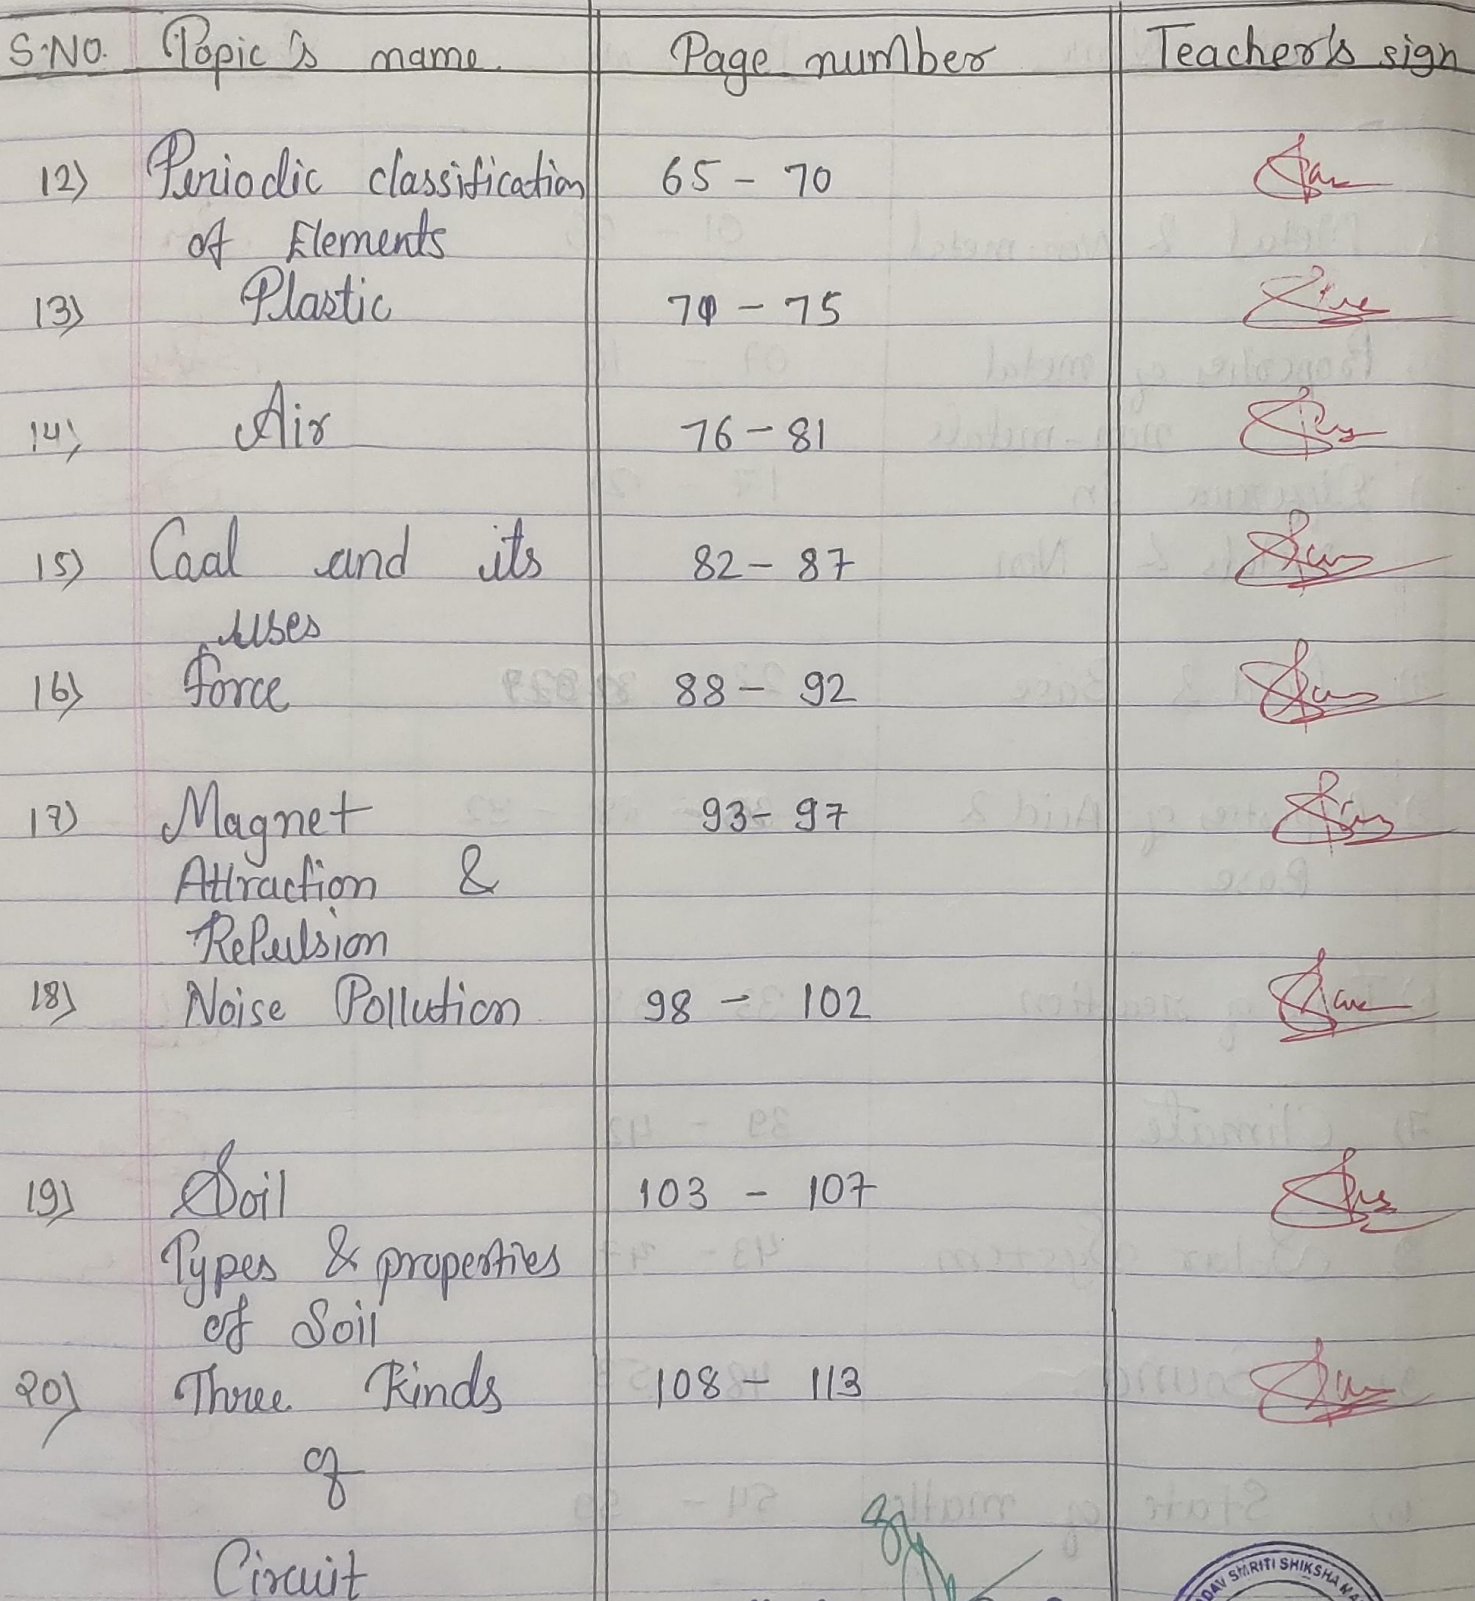 S.NO. Topic's name Page number Teacher's sign
12) Periodic classification 65 - 70
of Elements
13) Plastic 71 - 75
14) Air 76 - 81
15) Coal and its 82 - 87
uses
16) force 88 - 92
17) Magnet 93 - 97
Attraction &
Repulsion
18) Noise Pollution 98 - 102
19) Soil 103 - 107
Types & properties
of Soil
20) Three Kinds 108 - 113
of
Circuit
SMRITI SHIKSHA